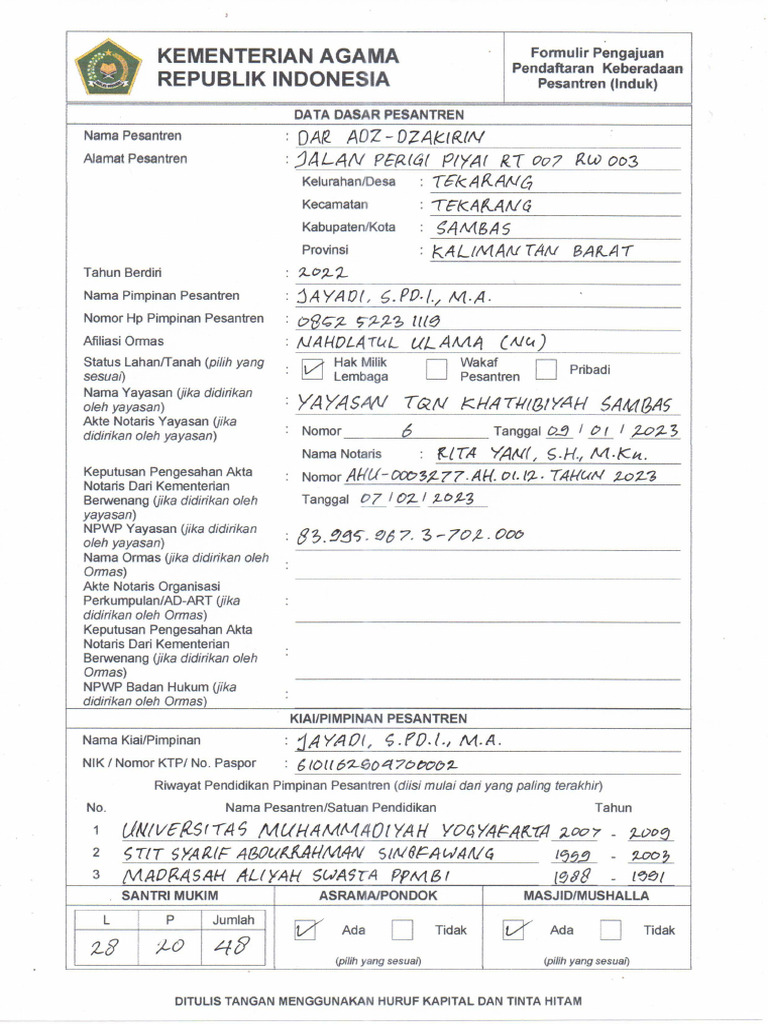 KEMENTERIAN AGAMA
REPUBLIK INDONESIA
Formulir Pengajuan
Pendaftaran Keberadaan
Pesantren (Induk)
DATA DASAR PESANTREN
Nama Pesantren : DAR ADZ-DZAKIRIN
Alamat Pesantren : JALAN PERIGI PIYAI RT 007 RW 003
Kelurahan/Desa : TEKARANG
Kecamatan : TEKARANG
Kabupaten/Kota : SAMBAS
Provinsi : KALIMANTAN BARAT
Tahun Berdiri : 2022
Nama Pimpinan Pesantren : JAYADI, S.PD.I., M.A.
Nomor Hp Pimpinan Pesantren : 0852 5223 1119
Afiliasi Ormas : NAHDLATUL ULAMA (NU)
Status Lahan/Tanah (pilih yang sesuai) : Hak Milik Lembaga Wakaf Pesantren Pribadi
Nama Yayasan (jika didirikan oleh yayasan) : YAYASAN TQN KHATHIBIYAH SAMBAS
Akte Notaris Yayasan (jika didirikan oleh yayasan) : Nomor 6 Tanggal 09 / 01 / 2023
Nama Notaris : RITA YANI, S.H., M.Kn.
Keputusan Pengesahan Akta Notaris Dari Kementerian Berwenang (jika didirikan oleh yayasan) : Nomor AHU-0003277.AH.01.12. TAHUN 2023
Tanggal 07 / 02 / 2023
NPWP Yayasan (jika didirikan oleh yayasan) : 83.995.967.3-702.000
Nama Ormas (jika didirikan oleh Ormas) :
Akte Notaris Organisasi Perkumpulan/AD-ART (jika didirikan oleh Ormas) :
Keputusan Pengesahan Akta Notaris Dari Kementerian Berwenang (jika didirikan oleh Ormas) :
NPWP Badan Hukum (jika didirikan oleh Ormas) :
KIAI/PIMPINAN PESANTREN
Nama Kiai/Pimpinan : JAYADI, S.PD.I., M.A.
NIK / Nomor KTP/ No. Paspor : 6101162504700002
Riwayat Pendidikan Pimpinan Pesantren (diisi mulai dari yang paling terakhir)
No. Nama Pesantren/Satuan Pendidikan Tahun
1 UNIVERSITAS MUHAMMADIYAH YOGYAKARTA 2007 - 2009
2 STIT SYARIF ABDURRAHMAN SINGKAWANG 1999 - 2003
3 MADRASAH ALIYAH SWASTA PPMBI 1988 - 1991
SANTRI MUKIM ASRAMA/PONDOK MASJID/MUSHALLA
L P Jumlah Ada Tidak Ada Tidak
28 20 48
(pilih yang sesuai) (pilih yang sesuai)
DITULIS TANGAN MENGGUNAKAN HURUF KAPITAL DAN TINTA HITAM